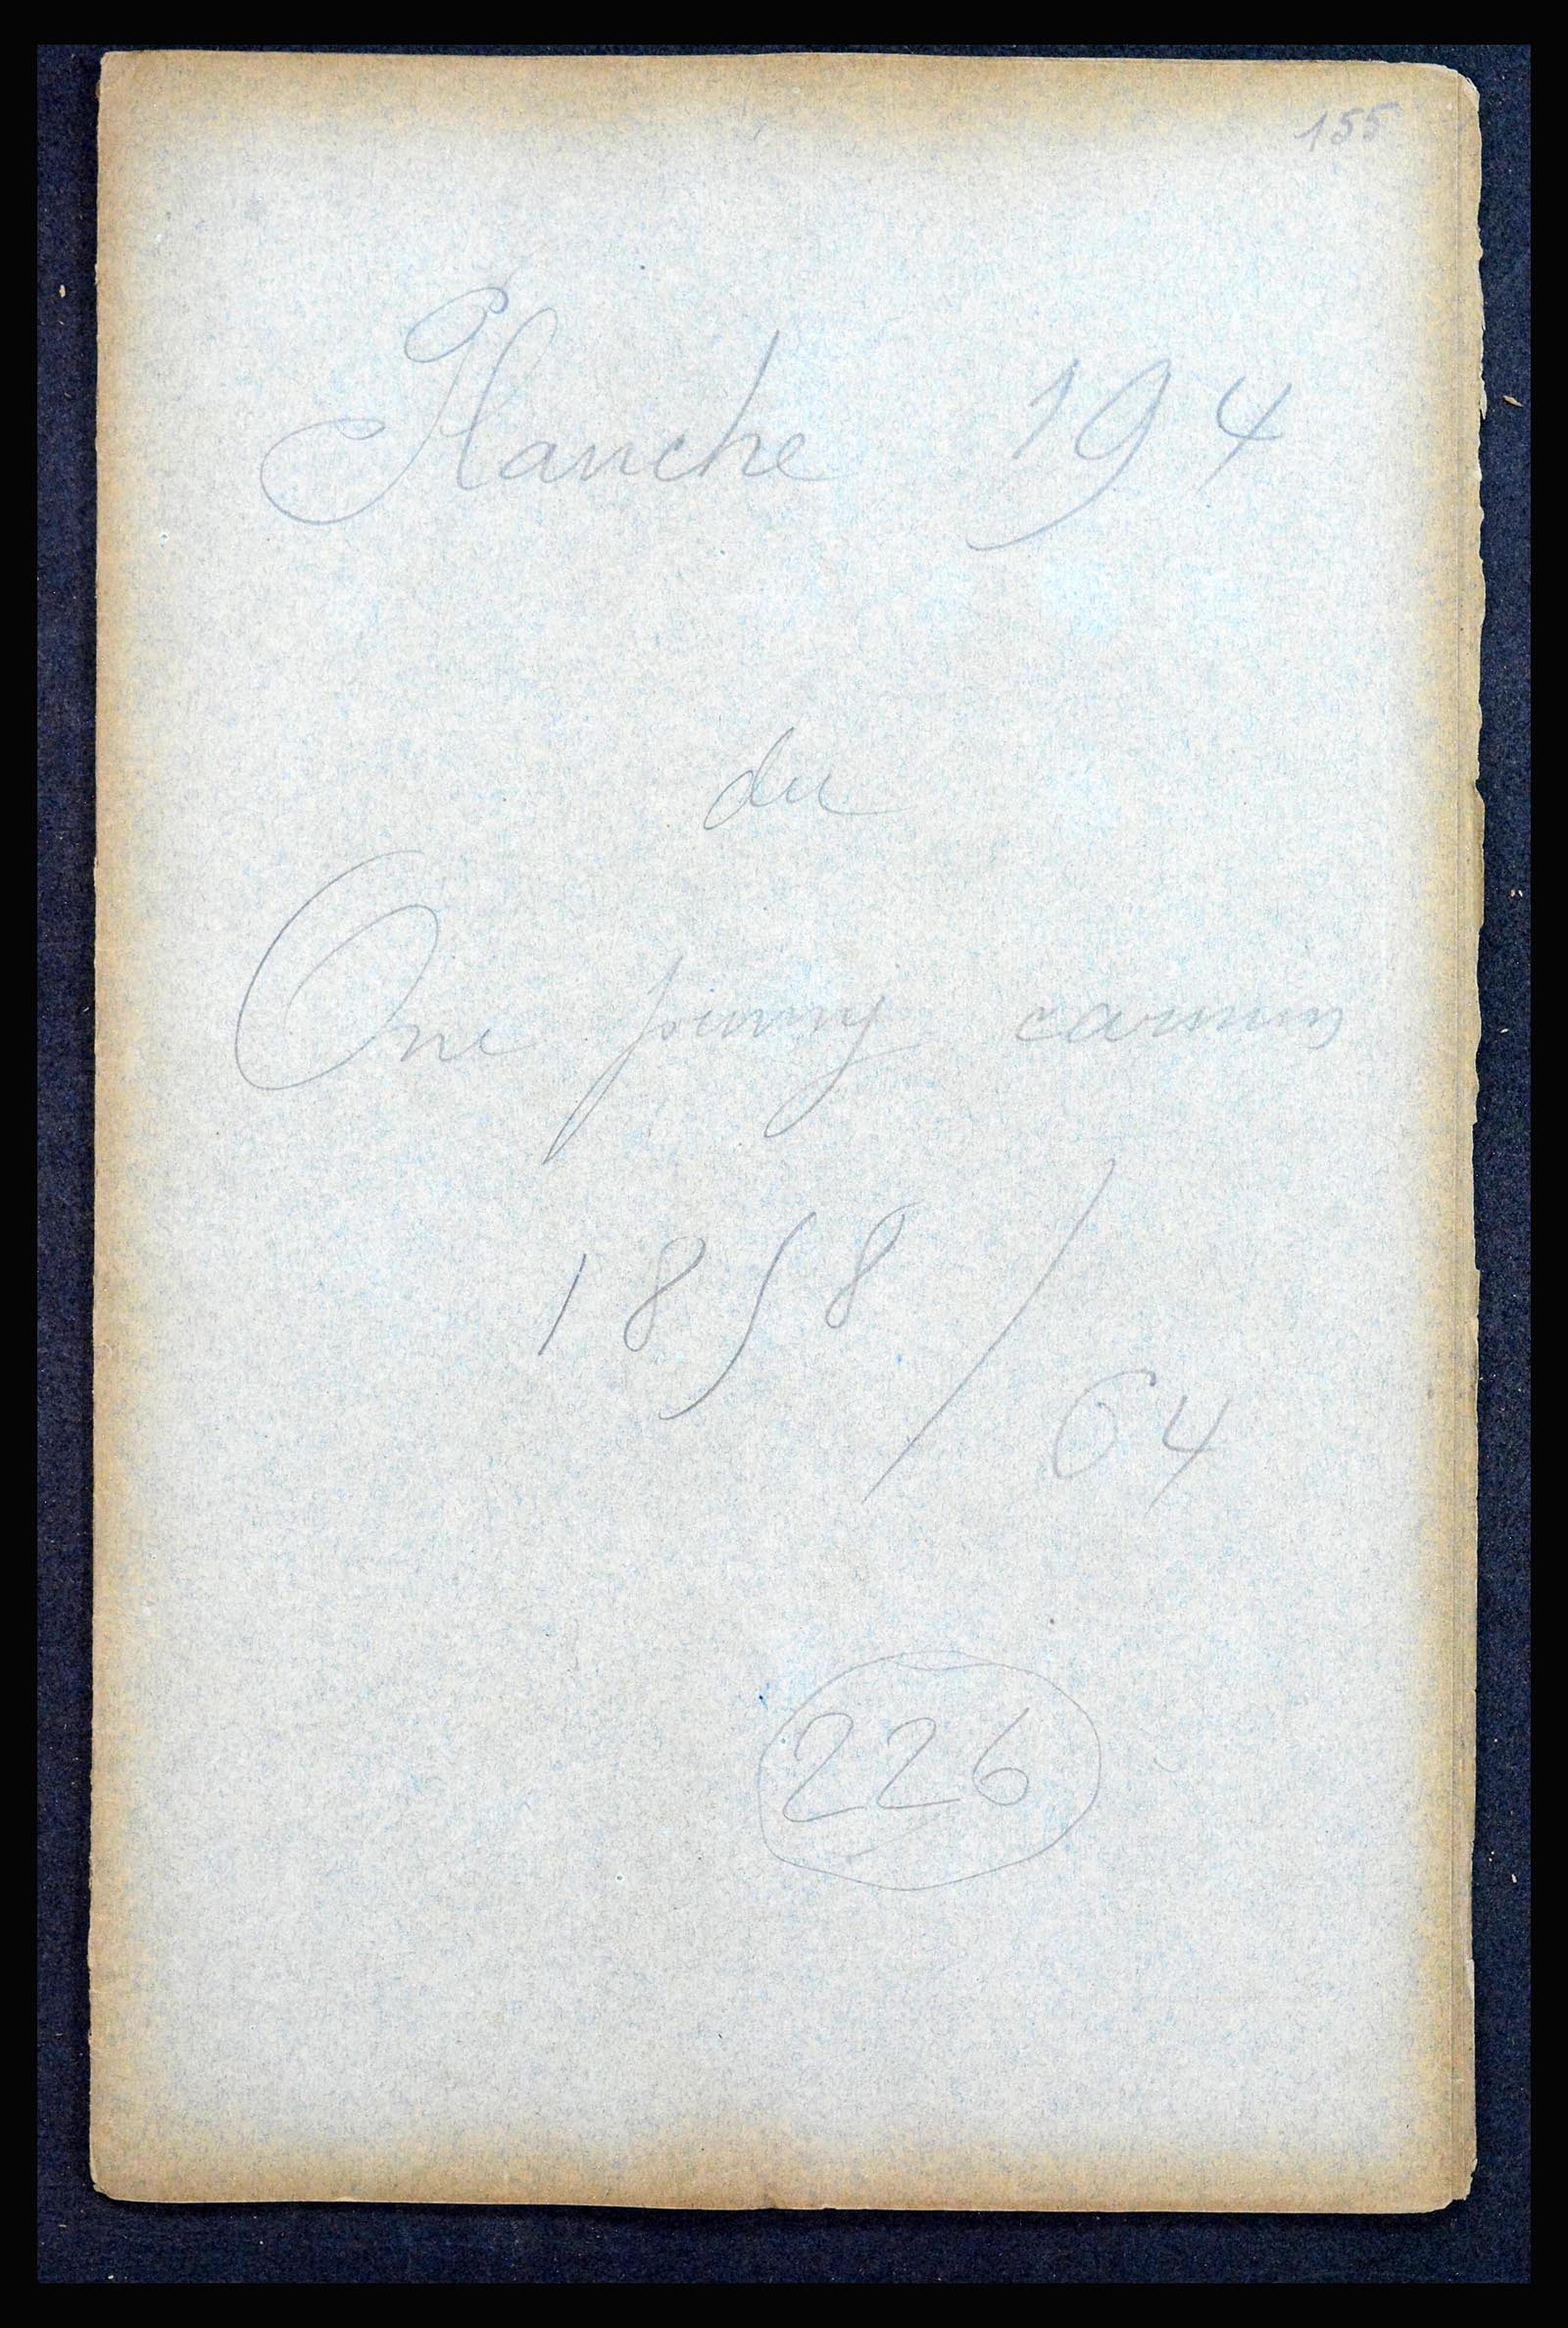 155
Planche 194
du
One penny carmin
1858/
64
226